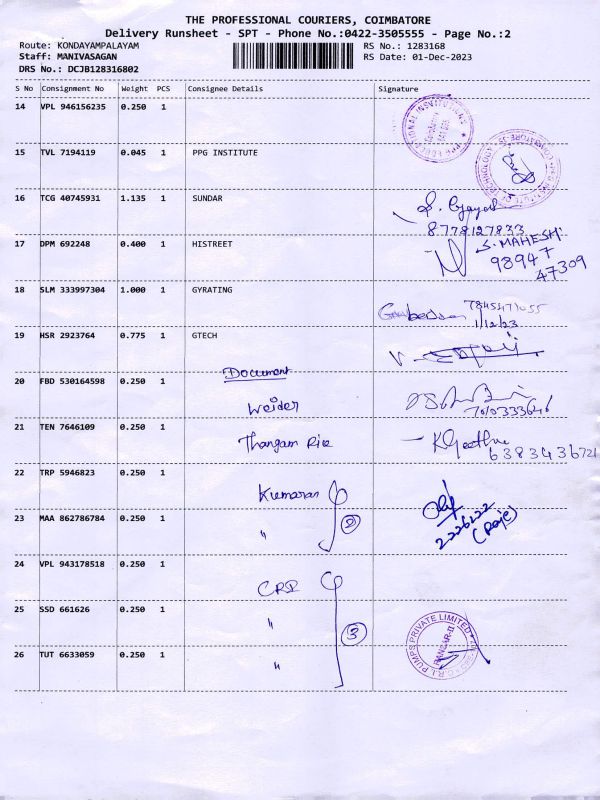 THE PROFESSIONAL COURIERS, COIMBATORE
Delivery Runsheet - SPT - Phone No.:0422-3505555 - Page No.:2
Route: KONDAYAMPALAYAM RS No.: 1283168
Staff: MANIVASAGAN RS Date: 01-Dec-2023
DRS No.: DCJB128316802
S No Consignment No Weight PCS Consignee Details Signature
14 VPL 946156235 0.250 1
15 TVL 7194119 0.045 1 PPG INSTITUTE
16 TCG 40745931 1.135 1 SUNDAR
8778127833
17 DPM 692248 0.400 1 HISTREET S. MAHESH.
98947
47309
18 SLM 333997304 1.000 1 GYRATING
7845471055
1/12/23
19 HSR 2923764 0.775 1 GTECH
Document
20 FBD 530164598 0.250 1 Weider
21 TEN 7646109 0.250 1 Thangam Rice KGeetha
6383436721
22 TRP 5946823 0.250 1 Kumaran
23 MAA 862786784 0.250 1 " 2
2226222
24 VPL 943178518 0.250 1 CRI
25 SSD 661626 0.250 1 " 3
26 TUT 6633059 0.250 1 "
C.R.I. PUMPS PRIVATE LIMITED